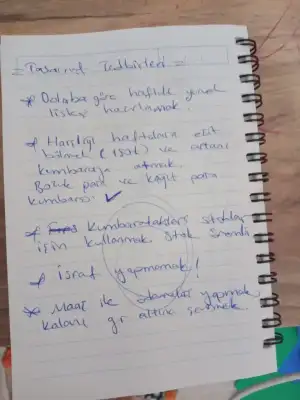 = Tasarruf Tedbirleri =
* Dolaba göre haftalık yemek
listesi hazırlamak.
* Harçlığı haftalara eşit
bölmek ( 150₺ ) ve artanı
kumbaraya atmak.
Bozuk para ve kağıt para
kumbarası ✓
* Kumbaradakileri stoklar
için kullanmak. Stok önemli
* İsraf yapmamak!
* Maaş ile ödemeleri yapmak,
kalanı gr altın çevirmek.